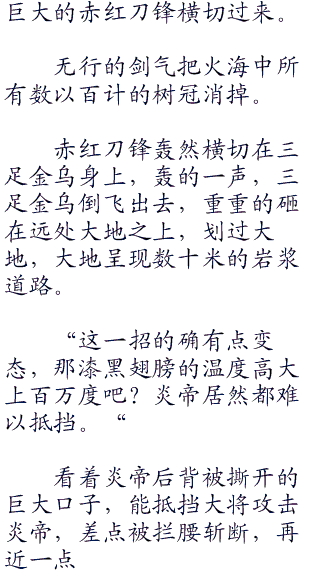 巨大的赤红刀锋横切过来。
无行的剑气把火海中所
有数以百计的树冠消掉。
赤红刀锋轰然横切在三
足金乌身上，轰的一声，三
足金乌倒飞出去，重重的砸
在远处大地之上，划过大
地，大地呈现数十米的岩浆
道路。
“这一招的确有点变
态，那漆黑翅膀的温度高大
上百万度吧？炎帝居然都难
以抵挡。“
看着炎帝后背被撕开的
巨大口子，能抵挡大将攻击
炎帝，差点被拦腰斩断，再
近一点